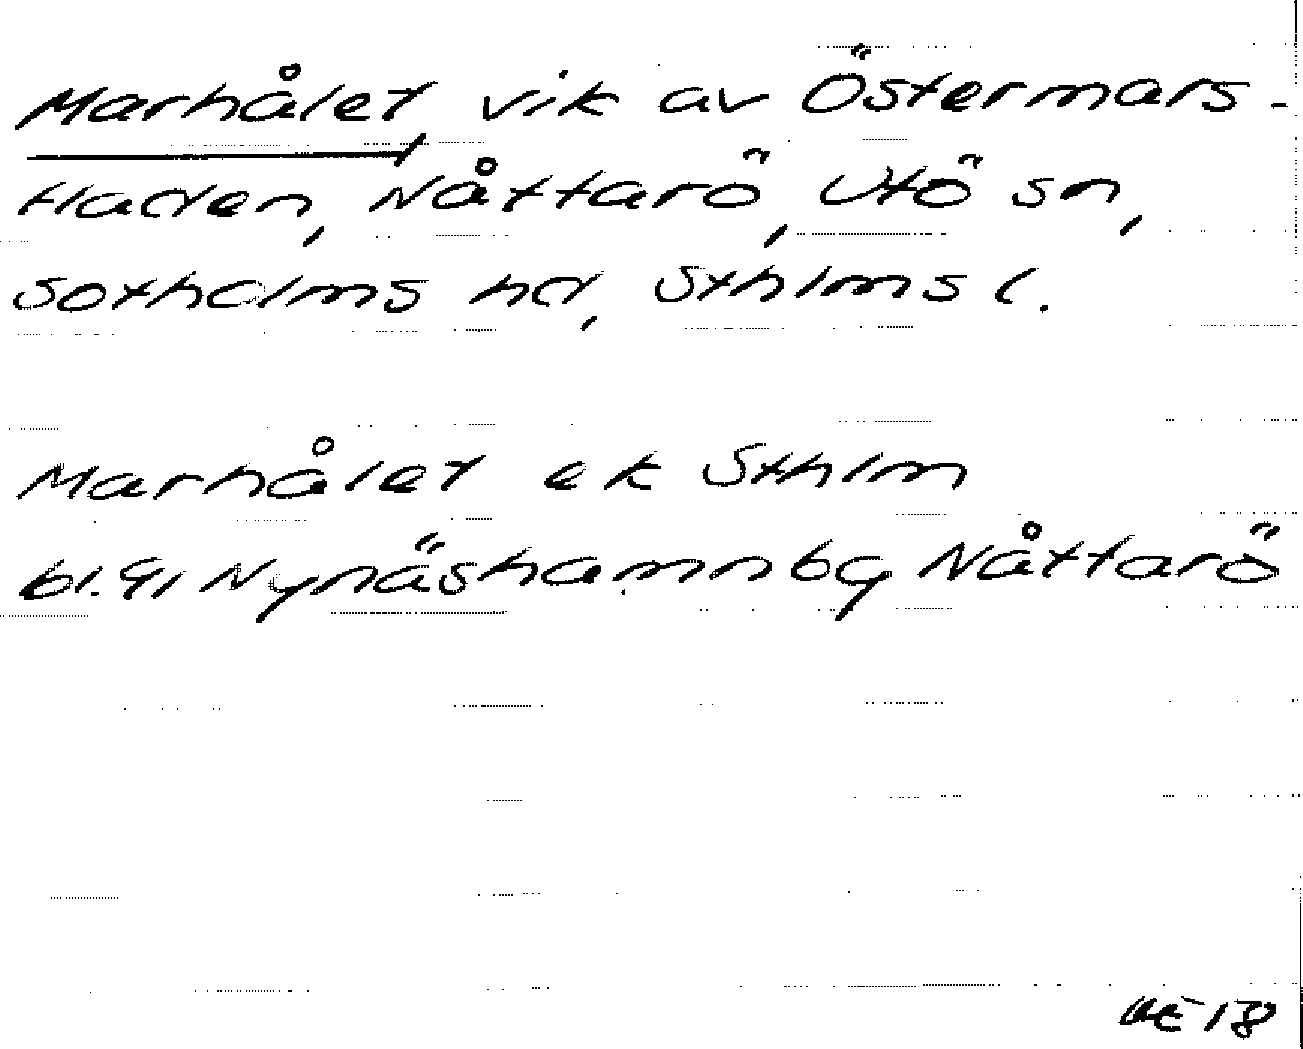 Marhålet, vik av Östermars-
fladen, Nåttarö, Utö sn,
Sotholms hd, Sthlms l.
Marhålet ek Sthlm
bl. 91 Nynäshamn bg Nåttarö